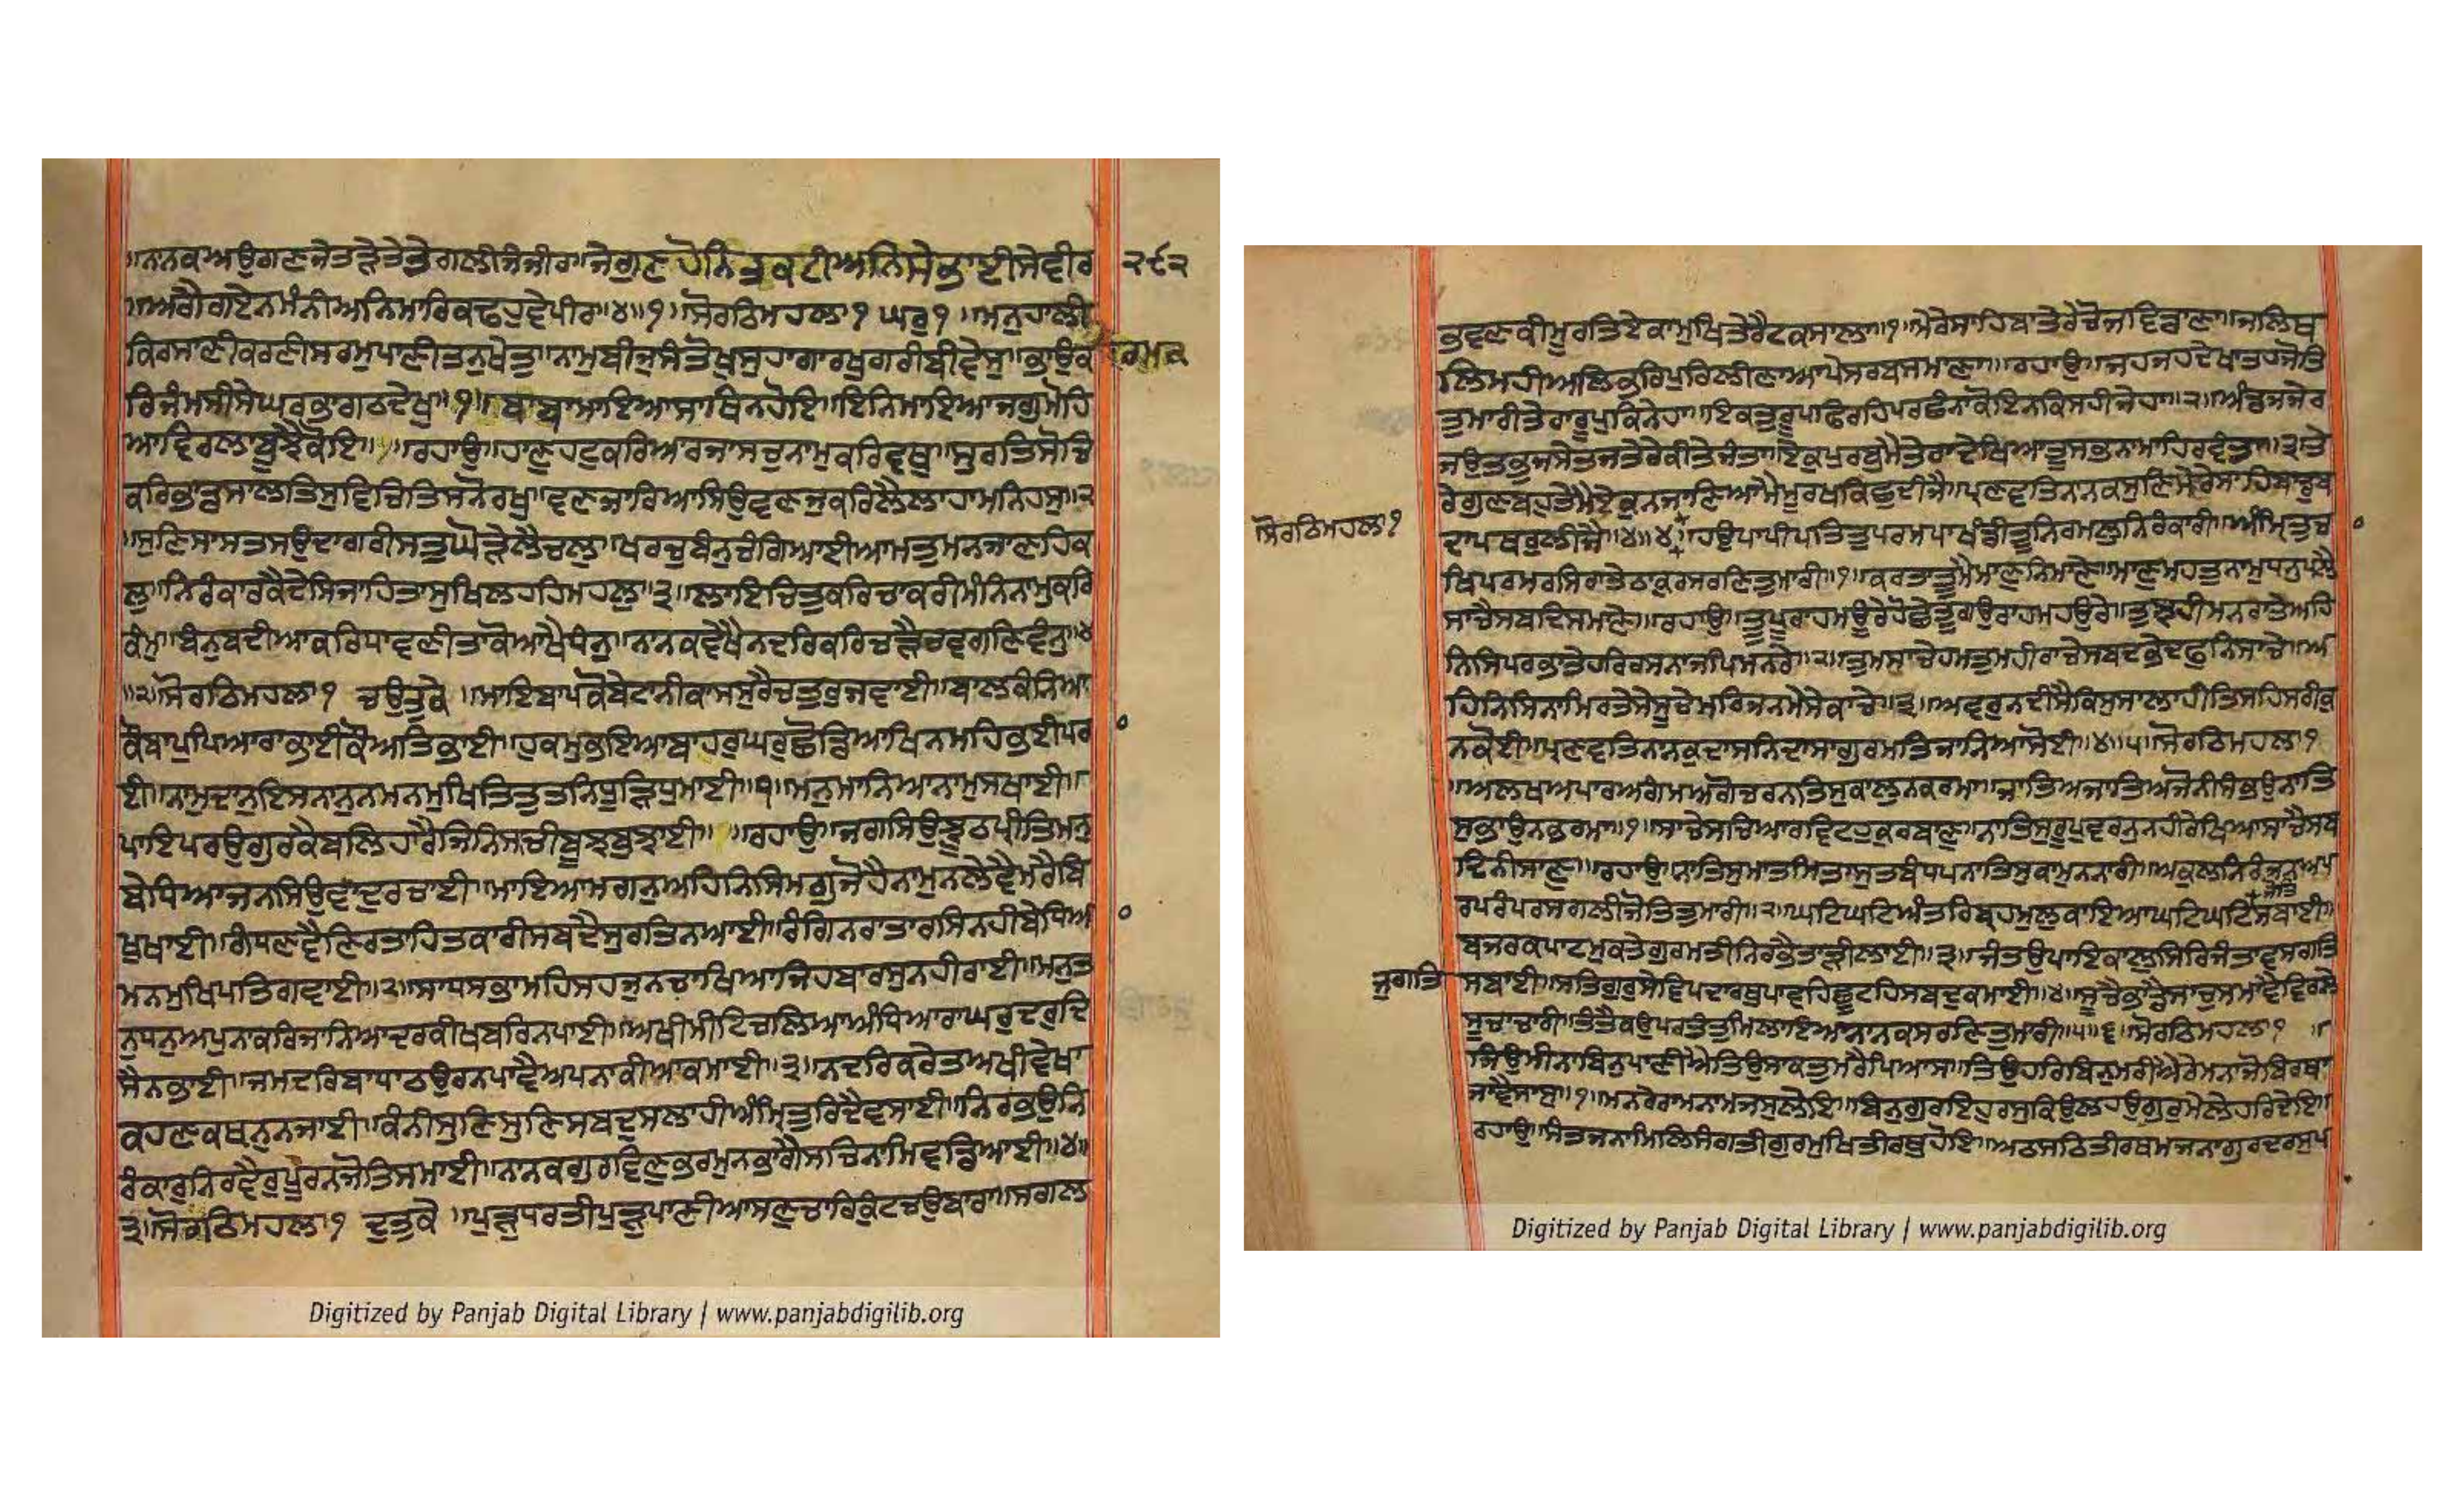 ॥ਨਾਨਕਅਉਗਣਜੇਤੜੇਤੇਤੇਗਲੀਜੰਜੀਰ॥ਜੇਗੁਣਹੋਨਿਤਕਟੀਅਨਿਸੇਭਾਈਸੇਵੀਰ ੨੯੨
॥ਅਗੈਗਏਨਮੰਨੀਅਨਿਮਾਰਿਕਢਹੁਵੇਪੀਰ॥੪॥੧॥ਸੋਰਠਿਮਹਲਾ੧ ਘਰੁ੧ ॥ਮਨੁਹਾਲੀ
ਕਿਰਸਾਣੀਕਰਣੀਸਰਮੁਪਾਣੀਤਨੁਖੇਤੁ॥ਨਾਮੁਬੀਜੁਸੰਤੋਖੁਸੁਹਾਗਾਰਖੁਗਰੀਬੀਵੇਸੁ॥ਭਾਉਕ ਰਮਕ
ਰਿਜੰਮਸੀਸੇਘਰਭਾਗਠਦੇਖੁ॥੧॥ਬਾਬਾਮਾਇਆਸਾਥਿਨਹੋਇ॥ਇਨਿਮਾਇਆਜਗੁਮੋਹਿ
ਆਵਿਰਲਾਬੂਝੈਕੋਇ॥ ॥ਰਹਾਉ॥ਹਾਣੁਹਟੁਕਰਿਆਰਜਾਸਚੁਨਾਮੁਕਰਿਵਥੁ॥ਸੁਰਤਿਸੋਚ
ਕਰਿਭਾਂਡਸਾਲਤਿਸੁਵਿਚਿਤਿਸਨੋਰਖੁ॥ਵਣਜਾਰਿਆਸਿਉਵਣਜੁਕਰਿਲੈਲਾਹਾਮਨਹਸੁ॥੨
॥ਸੁਣਿਸਾਸਤਸਉਦਾਗਰੀਸਤੁਘੋੜੇਲੈਚਲੁ॥ਖਰਚੁਬੰਨੁਚੰਗਿਆਈਆਮਤੁਮਨਜਾਣਹਿਕ
ਲੁ॥ਨਿਰੰਕਾਰਕੈਦੇਸਿਜਾਹਿਤਾਸੁਖਿਲਹਹਿਮਹਲੁ॥੩॥ਲਾਇਚਿਤੁਕਰਿਚਾਕਰੀਮੰਨਿਨਾਮੁਕਰਿ
ਕੰਮੁ॥ਬੰਨੁਬਦੀਆਕਰਿਧਾਵਣੀਤਾਕੋਆਖੈਧੰਨੁ॥ਨਾਨਕਵੇਖੈਨਦਰਿਕਰਿਚੜੈਚਵਗਣਵੰਨੁ॥੪
॥੨॥ਸੋਰਠਿਮਹਲਾ੧ ਚਉਤੁਕੇ ॥ਮਾਇਬਾਪਕੋਬੇਟਾਨੀਕਾਸਸੁਰੈਚਤੁਰੁਜਵਾਈ॥ਬਾਲਕੰਨਿਆ
ਕੋਬਾਪੁਪਿਆਰਾਭਾਈਕੋਅਤਿਭਾਈ॥ਹੁਕਮੁਭਇਆਬਾਹਰੁਘਰੁਛੋਡਿਆਖਿਨਮਹਿਭਈਪਰਾ
ਈ॥ਨਾਮੁਦਾਨੁਇਸਨਾਨੁਨਮਨਮੁਖਿਤਿਤੁਤਨਿਧੂੜਿਧੁਮਾਈ॥੧॥ਮਨੁਮਾਨਿਆਨਾਮੁਸਖਾਈ॥
ਪਾਇਪਰਉਗੁਰਕੈਬਲਿਹਾਰੈਜਿਨਿਸਾਚੀਬੂਝਬੁਝਾਈ॥ ॥ਰਹਾਉ॥ਜਗਸਿਉਝੂਠਪ੍ਰੀਤਿਮਨੁ
ਬੇਧਿਆਜਨਸਿਉਵਾਦੁਰਚਾਈ॥ਮਾਇਆਮਗਨੁਅਹਿਨਿਸਿਮਗੁਜੋਹੈਨਾਮੁਨਲੇਵੈਮਰੈਬਿ
ਖੁਖਾਈ॥ਗੰਧਣਵੈਣਿਰਤਾਹਿਤਕਾਰੀਸਬਦੈਸੁਰਤਿਨਆਈ॥ਰੰਗਿਨਰਾਤਾਰਸਿਨਹੀਬੇਧਿਆ
ਮਨਮੁਖਿਪਤਿਗਵਾਈ॥੨॥ਸਾਧਸਭਾਮਹਿਸਹਜੁਨਚਾਖਿਆਜਿਹਬਾਰਸੁਨਹੀਰਾਈ॥ਮਨੁਤ
ਨੁਧਨੁਅਪੁਨਾਕਰਿਜਾਨਿਆਦਰਕੀਖਬਰਿਨਪਾਈ॥ਅਖੀਮੀਟਿਚਲਿਆਅੰਧਿਆਰਾਘਰੁਦਰੁਦਿ
ਸੈਨਭਾਈ॥ਜਮਦਰਿਬਾਧਾਠਉਰਨਪਾਵੈਅਪਨਾਕੀਆਕਮਾਈ॥੩॥ਨਦਰਿਕਰੇਤਾਅਖੀਵੇਖਾ
ਕਹਣਕਥਨੁਨਜਾਈ॥ਕੰਨੀਸੁਣਿਸੁਣਿਸਬਦੁਸਲਾਹੀਅੰਮ੍ਰਿਤੁਰਿਦੈਵਸਾਈ॥ਨਿਰਭਉਨਿ
ਰੰਕਾਰੁਨਿਰਵੈਰੁਪੂਰਨਜੋਤਿਸਮਾਈ॥ਨਾਨਕਗੁਰਵਿਣੁਭਰਮੁਨਭਾਗੈਸਚਿਨਾਮਿਵਡਿਆਈ॥੪॥
੩॥ਸੋਰਠਿਮਹਲਾ੧ ਦੁਤੁਕੇ ॥ਪੁੜੁਧਰਤੀਪੁੜੁਪਾਣੀਆਸਣੁਚਾਰਿਕੁੰਟਚਉਬਾਰਾ॥ਸਗਲ
ਭਵਣਕੀਮੂਰਤਿਏਕਾਮੁਖਿਤੇਰੈਟਕਸਾਲਾ॥੧॥ਮੇਰੇਸਾਹਿਬਾਤੇਰੇਚੋਜਵਿਡਾਣਾ॥ਜਲਿਥ
ਲਿਮਹੀਅਲਿਭਰਿਪੁਰਿਲੀਣਾਆਪੇਸਰਬਸਮਾਣਾ॥ਰਹਾਉ॥ਜਹਜਹਦੇਖਾਤਹਜੋਤਿ
ਤੁਮਾਰੀਤੇਰਾਰੂਪੁਕਿਨੇਹਾ॥ਇਕਤੁਰੂਪਿਫਿਰਹਿਪਰਛੰਨਾਕੋਇਨਕਿਸਹੀਜੇਹਾ॥੨॥ਅੰਡਜਜੇਰ
ਜਉਤਭੁਜਸੇਤਜਤੇਰੇਕੀਤੇਜੰਤਾ॥ਏਕੁਪੁਰਬੁਮੈਤੇਰਾਦੇਖਿਆਤੂਸਭਨਾਮਾਹਿਰਵੰਤਾ॥੩॥ਤੇ
ਰੇਗੁਣਬਹੁਤੇਮੈਏਕੁਨਜਾਣਿਆਮੈਮੂਰਖਕਿਛੁਦੀਜੈ॥ਪ੍ਰਣਵਤਿਨਾਨਕਸੁਣਿਮੇਰੇਸਾਹਿਬਾਡੁਬ
ਸੋਰਠਿਮਹਲਾ੧ ਦਾਪਥਰੁਲੀਜੈ॥੪॥੪॥ਹਉਪਾਪੀਪਤਿਤੁਪਰਮਪਾਖੰਡੀਤੂਨਿਰਮਲੁਨਿਰੰਕਾਰੀ॥ਅੰਮ੍ਰਿਤੁਚਾ
ਖਿਪਰਮਰਸਿਰਾਤੇਠਾਕੁਰਸਰਣਿਤੁਮਾਰੀ॥੧॥ਕਰਤਾਤੂਮੈਮਾਣੁਨਿਮਾਣੇ॥ਮਾਣੁਮਹਤੁਨਾਮੁਧਨੁਪਲੈ
ਸਾਚੈਸਬਦਿਸਮਾਣੇ॥ਰਹਾਉ॥ਤੂਪੂਰਾਹਮਊਰੇਹੋਛੇਤੂਗਉਰਾਹਮਹਉਰੇ॥ਤੁਝਹੀਮਨਰਾਤੇਅਹਿ
ਨਿਸਿਪਰਭਾਤੇਹਰਿਰਸਨਾਜਪਿਮਨਰੇ॥੨॥ਤੁਮਸਾਚੇਹਮਤੁਮਹੀਰਾਚੇਸਬਦਭੇਦਫੁਨਿਸਾਚੇ॥ਅ
ਹਿਨਿਸਿਨਾਮਿਰਤੇਸੇਸੂਚੇਮਰਿਜਨਮੇਸੇਕਾਚੇ॥੩॥ਅਵਰੁਨਦੀਸੈਕਿਸੁਸਾਲਾਹੀਤਿਸਹਿਸਰੀਕੁ
ਨਕੋਈ॥ਪ੍ਰਣਵਤਿਨਾਨਕੁਦਾਸਨਿਦਾਸਾਗੁਰਮਤਿਜਾਨਿਆਸੋਈ॥੪॥੫॥ਸੋਰਠਿਮਹਲਾ੧
॥ਅਲਖਅਪਾਰਅਗੰਮਅਗੋਚਰਨਾਤਿਸੁਕਾਲੁਨਕਰਮਾ॥ਜਾਤਿਅਜਾਤਿਅਜੋਨੀਸੰਭਉਨਾਤਿ
ਸੁਭਾਉਨਭਰਮਾ॥੧॥ਸਾਚੇਸਚਿਆਰਵਿਟਹੁਕੁਰਬਾਣੁ॥ਨਾਤਿਸੁਰੂਪੁਵਰਨੁਨਹੀਰੇਖਿਆਸਾਚੈਸਬ
ਦਿਨੀਸਾਣੁ॥ਰਹਾਉ॥ਨਾਤਿਸੁਮਾਤਪਿਤਾਸੁਤਬੰਧਪਨਾਤਿਸੁਕਾਮੁਨਨਾਰੀ॥ਅਕੁਲਨਿਰੰਜਨਅਪਾ
ਰਪਰੰਪਰਸਗਲੀਜੋਤਿਤੁਮਾਰੀ॥੨॥ਘਟਿਘਟਿਅੰਤਰਿਬ੍ਰਹਮੁਲੁਕਾਇਆਘਟਿਘਟਿਜੋਤਿਸਬਾਈ॥
ਬਜਰਕਪਾਟਮੁਕਤੇਗੁਰਮਤੀਨਿਰਭੈਤਾੜੀਲਾਈ॥੩॥ਜੰਤਉਪਾਇਕਾਲੁਸਿਰਿਜੰਤਾਵਸਗਤਿ
ਜੁਗਤਿ ਸਬਾਈ॥ਸਤਿਗੁਰੁਸੇਵਿਪਦਾਰਥੁਪਾਵਹਿਛੂਟਹਿਸਬਦੁਕਮਾਈ॥੪॥ਸੂਚੈਭਾਡੈਸਾਚੁਸਮਾਵੈਵਿਰਲੇ
ਸੂਚਾਚਾਰੀ॥ਤੰਤੈਕਉਪਰਤੰਤੁਮਿਲਾਇਆਨਾਨਕਸਰਣਿਤੁਮਾਰੀ॥੫॥੬॥ਸੋਰਠਿਮਹਲਾ੧ ॥
ਜਿਉਮੀਨਾਬਿਨੁਪਾਣੀਐਤਿਉਸਾਕਤੁਮਰੈਪਿਆਸ॥ਤਿਉਹਰਿਬਿਨੁਮਰੀਐਰੇਮਨਾਜੋਬਿਰਥਾ
ਜਾਵੈਸਾਸੁ॥੧॥ਮਨਰੇਰਾਮਨਾਮਜਸੁਲੇਇ॥ਬਿਨੁਗੁਰਇਹੁਰਸੁਕਿਉਲਹਉਗੁਰੁਮੇਲੇਹਰਿਦੇਇ॥
ਰਹਾਉ॥ਸੰਤਜਨਾਮਿਲਿਸੰਗਤੀਗੁਰਮੁਖਿਤੀਰਥੁਹੋਇ॥ਅਠਸਠਿਤੀਰਥਮਜਨਾਗੁਰਦਰਸੁਪ
Digitized by Panjab Digital Library | www.panjabdigilib.org
Digitized by Panjab Digital Library | www.panjabdigilib.org